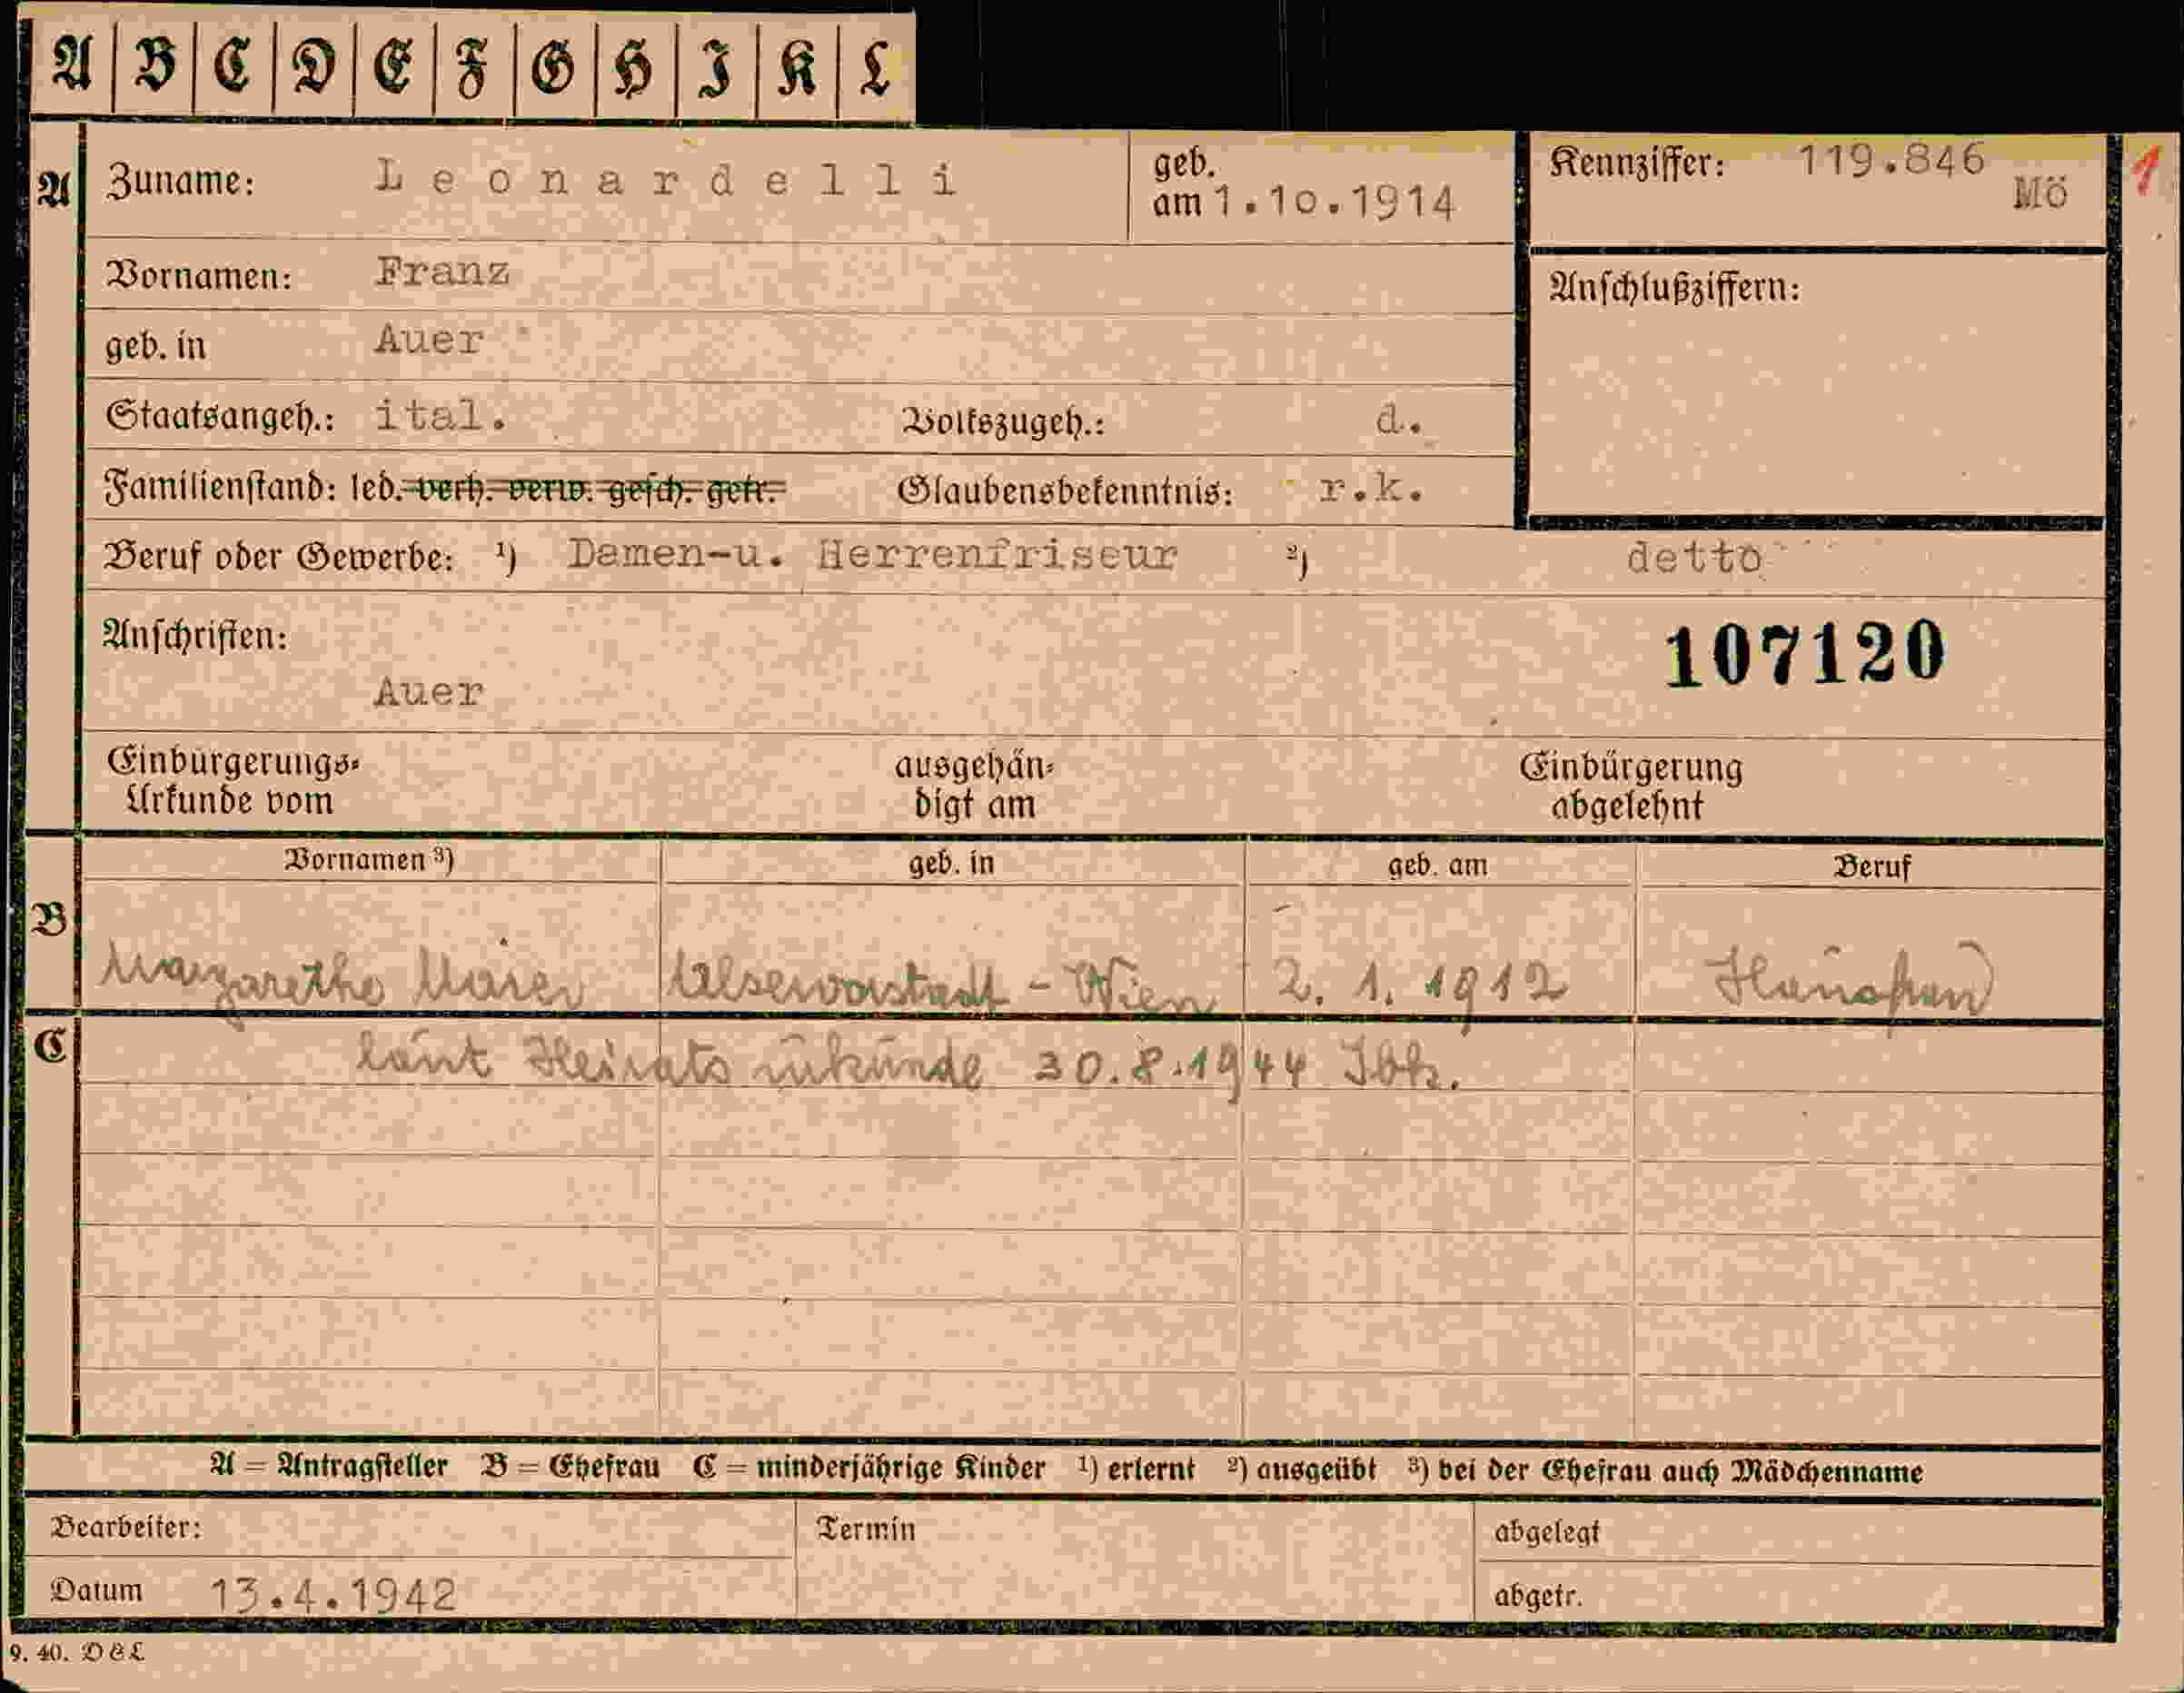 A B C D E F G H I K L
A Zuname: Leonardelli geb. am 1.10.1914 Kennziffer: 119.846 Mö 1
Vornamen: Franz Anschlußziffern:
geb. in Auer
Staatsangeh.: ital. Volkszugeh.: d.
Familienstand: led. verh. verw. gesch. getr. Glaubensbekenntnis: r.k.
Beruf oder Gewerbe: ¹) Damen-u. Herrenfriseur ²) detto
Anschriften: 107120
Auer
Einbürgerungs- ausgehän- Einbürgerung
Urkunde vom digt am abgelehnt
Vornamen ³) geb. in geb. am Beruf
B Margarethe Maier Alservorstadt - Wien 2. 1. 1912 Hausfrau
C laut Heiratsurkunde 30.8.1944 Ibk.
A = Antragsteller B = Ehefrau C = minderjährige Kinder ¹) erlernt ²) ausgeübt ³) bei der Ehefrau auch Mädchenname
Bearbeiter: Termin abgelegt
Datum 13.4.1942 abgetr.
9. 40. D & L